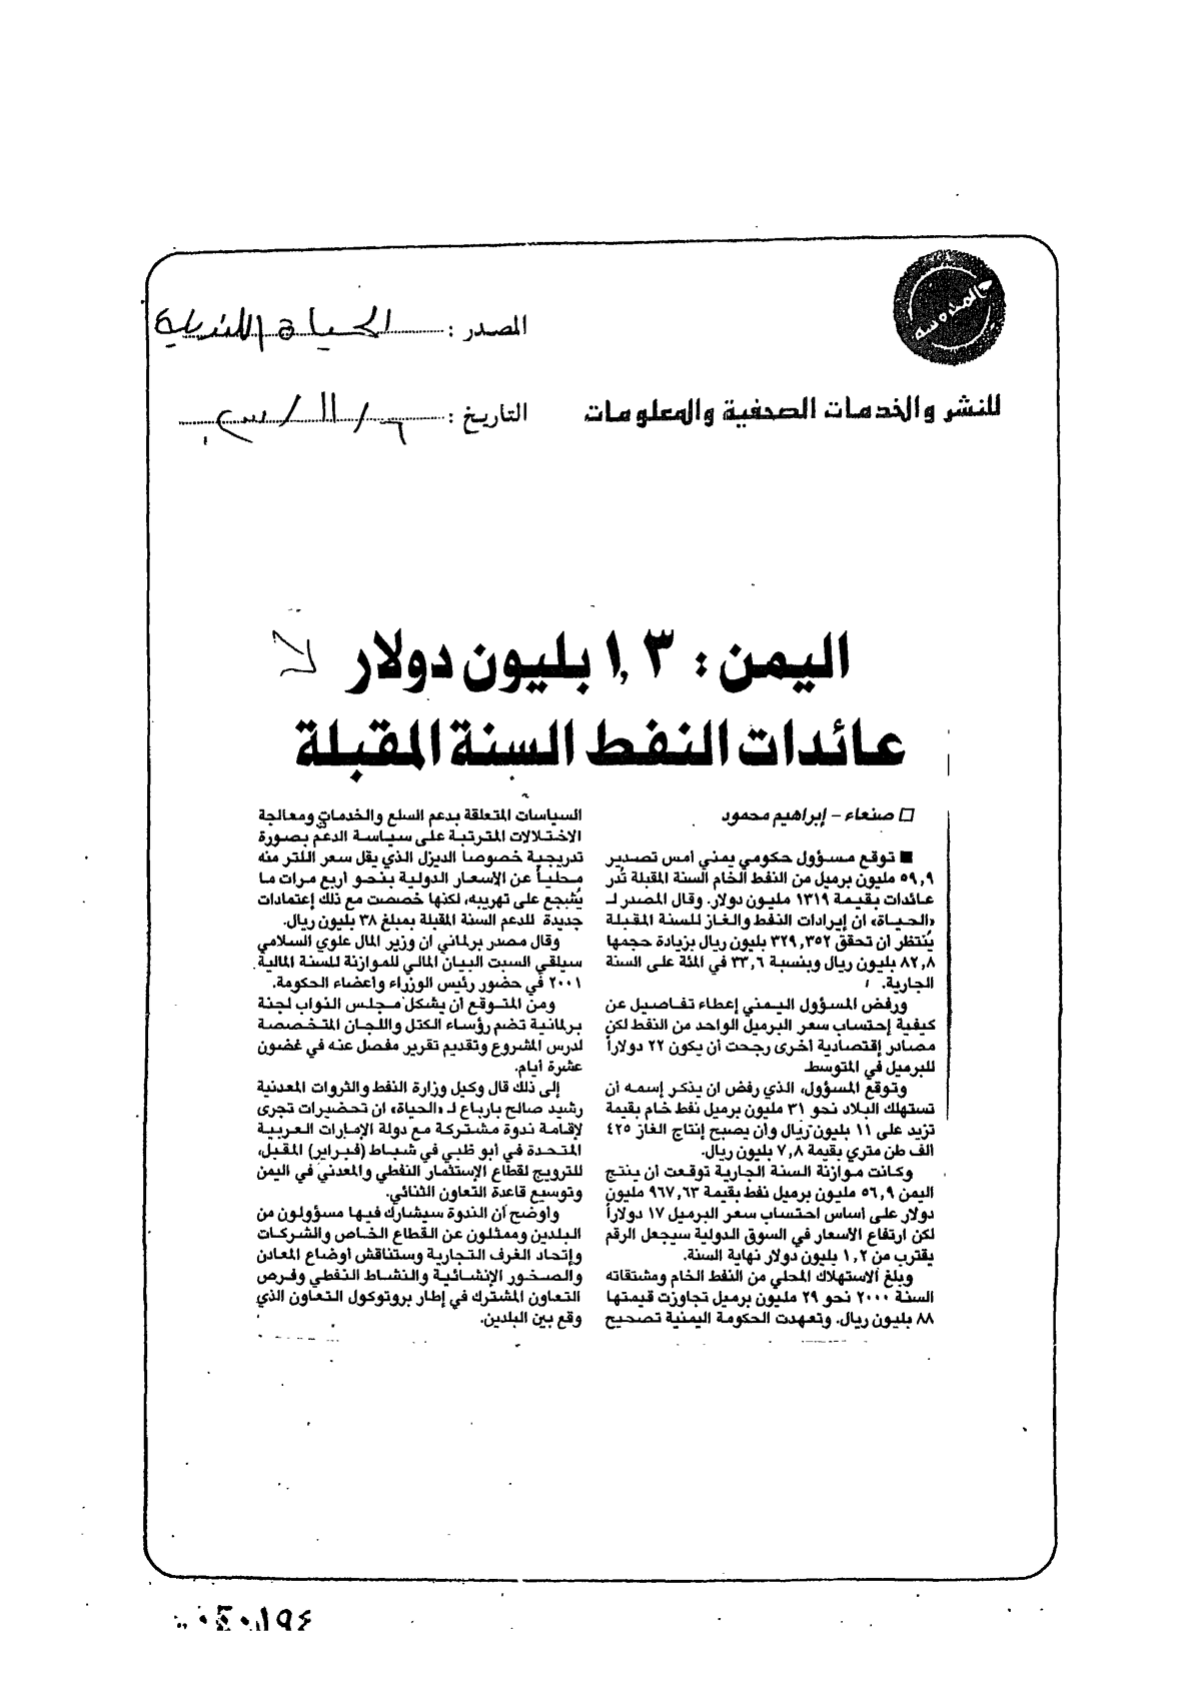 المصدر : الحياة اللندنية
للنشر والخدمات الصحفية والمعلومات
التاريخ : ٦ / ١١ /
اليمن : ١,٣ بليون دولار
عائدات النفط السنة المقبلة
□ صنعاء – إبراهيم محمود
■ توقع مسؤول حكومي يمني أمس تصدير
٥٩,٩ مليون برميل من النفط الخام السنة المقبلة تُدر
عائدات بقيمة ١٣١٩ مليون دولار. وقال المصدر لـ
«الحياة» ان إيرادات النفط والغاز للسنة المقبلة
يُنتظر ان تحقق ٣٢٩,٣٥٢ بليون ريال بزيادة حجمها
٨٢,٨ بليون ريال وبنسبة ٣٣,٦ في المئة على السنة
الجارية.
ورفض المسؤول اليمني إعطاء تفاصيل عن
كيفية إحتساب سعر البرميل الواحد من النفط لكن
مصادر إقتصادية اخرى رجحت أن يكون ٢٢ دولاراً
للبرميل في المتوسط.
وتوقع المسؤول، الذي رفض ان يذكر إسمه أن
تستهلك البلاد نحو ٣١ مليون برميل نفط خام بقيمة
تزيد على ١١ بليون ريال وأن يصبح إنتاج الغاز ٤٢٥
الف طن متري بقيمة ٧,٨ بليون ريال.
وكانت موازنة السنة الجارية توقعت أن ينتج
اليمن ٥٦,٩ مليون برميل نفط بقيمة ٩٦٧,٦٣ مليون
دولار على أساس احتساب سعر البرميل ١٧ دولاراً
لكن ارتفاع الأسعار في السوق الدولية سيجعل الرقم
يقترب من ١,٢ بليون دولار نهاية السنة.
وبلغ الاستهلاك المحلي من النفط الخام ومشتقاته
السنة ٢٠٠٠ نحو ٢٩ مليون برميل تجاوزت قيمتها
٨٨ بليون ريال. وتعهدت الحكومة اليمنية تصحيح
السياسات المتعلقة بدعم السلع والخدمات ومعالجة
الاختلالات المترتبة على سياسة الدعم بصورة
تدريجية خصوصاً الديزل الذي يقل سعر اللتر منه
محلياً عن الاسعار الدولية بنحو أربع مرات ما
يُشجع على تهريبه، لكنها خصصت مع ذلك إعتمادات
جديدة للدعم السنة المقبلة بمبلغ ٣٨ بليون ريال.
وقال مصدر برلماني ان وزير المال علوي السلامي
سيلقي السبت البيان المالي للموازنة للسنة المالية
٢٠٠١ في حضور رئيس الوزراء وأعضاء الحكومة.
ومن المتوقع ان يشكل مجلس النواب لجنة
برلمانية تضم رؤساء الكتل واللجان المتخصصة
لدرس المشروع وتقديم تقرير مفصل عنه في غضون
عشرة أيام.
إلى ذلك قال وكيل وزارة النفط والثروات المعدنية
رشيد صالح بارباع لـ «الحياة» ان تحضيرات تجرى
لإقامة ندوة مشتركة مع دولة الإمارات العربية
المتحدة في أبو ظبي في شباط (فبراير) المقبل،
للترويج لقطاع الإستثمار النفطي والمعدني في اليمن
وتوسيع قاعدة التعاون الثنائي.
وأوضح أن الندوة سيشارك فيها مسؤولون من
البلدين وممثلون عن القطاع الخاص والشركات
وإتحاد الغرف التجارية وستناقش اوضاع المعادن
والصخور الإنشائية والنشاط النفطي وفرص
التعاون المشترك في إطار بروتوكول التعاون الذي
وقع بين البلدين.